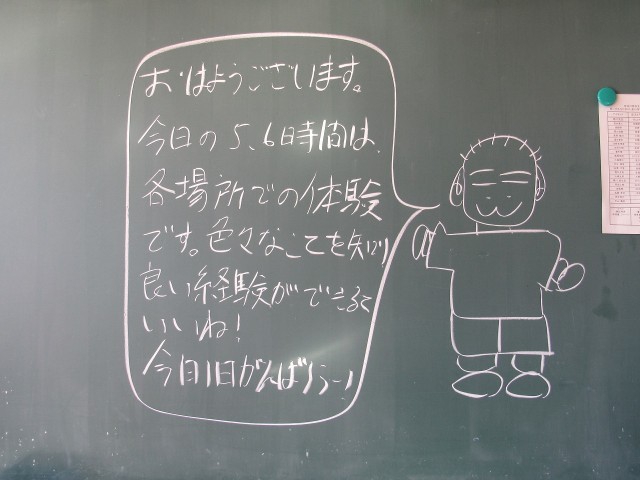 おはようございます。
今日の5、6時間は、
各場所での体験
です。色々なことを知り
良い経験ができると
いいね!
今日1日がんばろう!